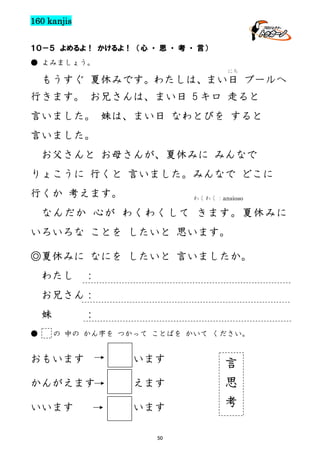 160 kanjis
10－5 よめるよ！ かけるよ！ （心 ・ 思 ・ 考 ・ 言）
● よみましょう。
にち
もうすぐ 夏休みです。わたしは、まい日 プールへ
行きます。 お兄さんは、まい日 ５キロ 走ると
言いました。 妹は、まい日 なわとびを すると
言いました。
お父さんと お母さんが、夏休みに みんなで
りょこうに 行くと 言いました。みんなで どこに
行くか 考えます。
わくわく：ansioso
なんだか 心が わくわくして きます。夏休みに
いろいろな ことを したいと 思います。
◎夏休みに なにを したいと 言いましたか。
わたし ：
お兄さん：
妹 ：
● の 中の かん字を つかって ことばを かいて ください。
おもいます → います
かんがえます→ えます
いいます → います
言
思
考
50